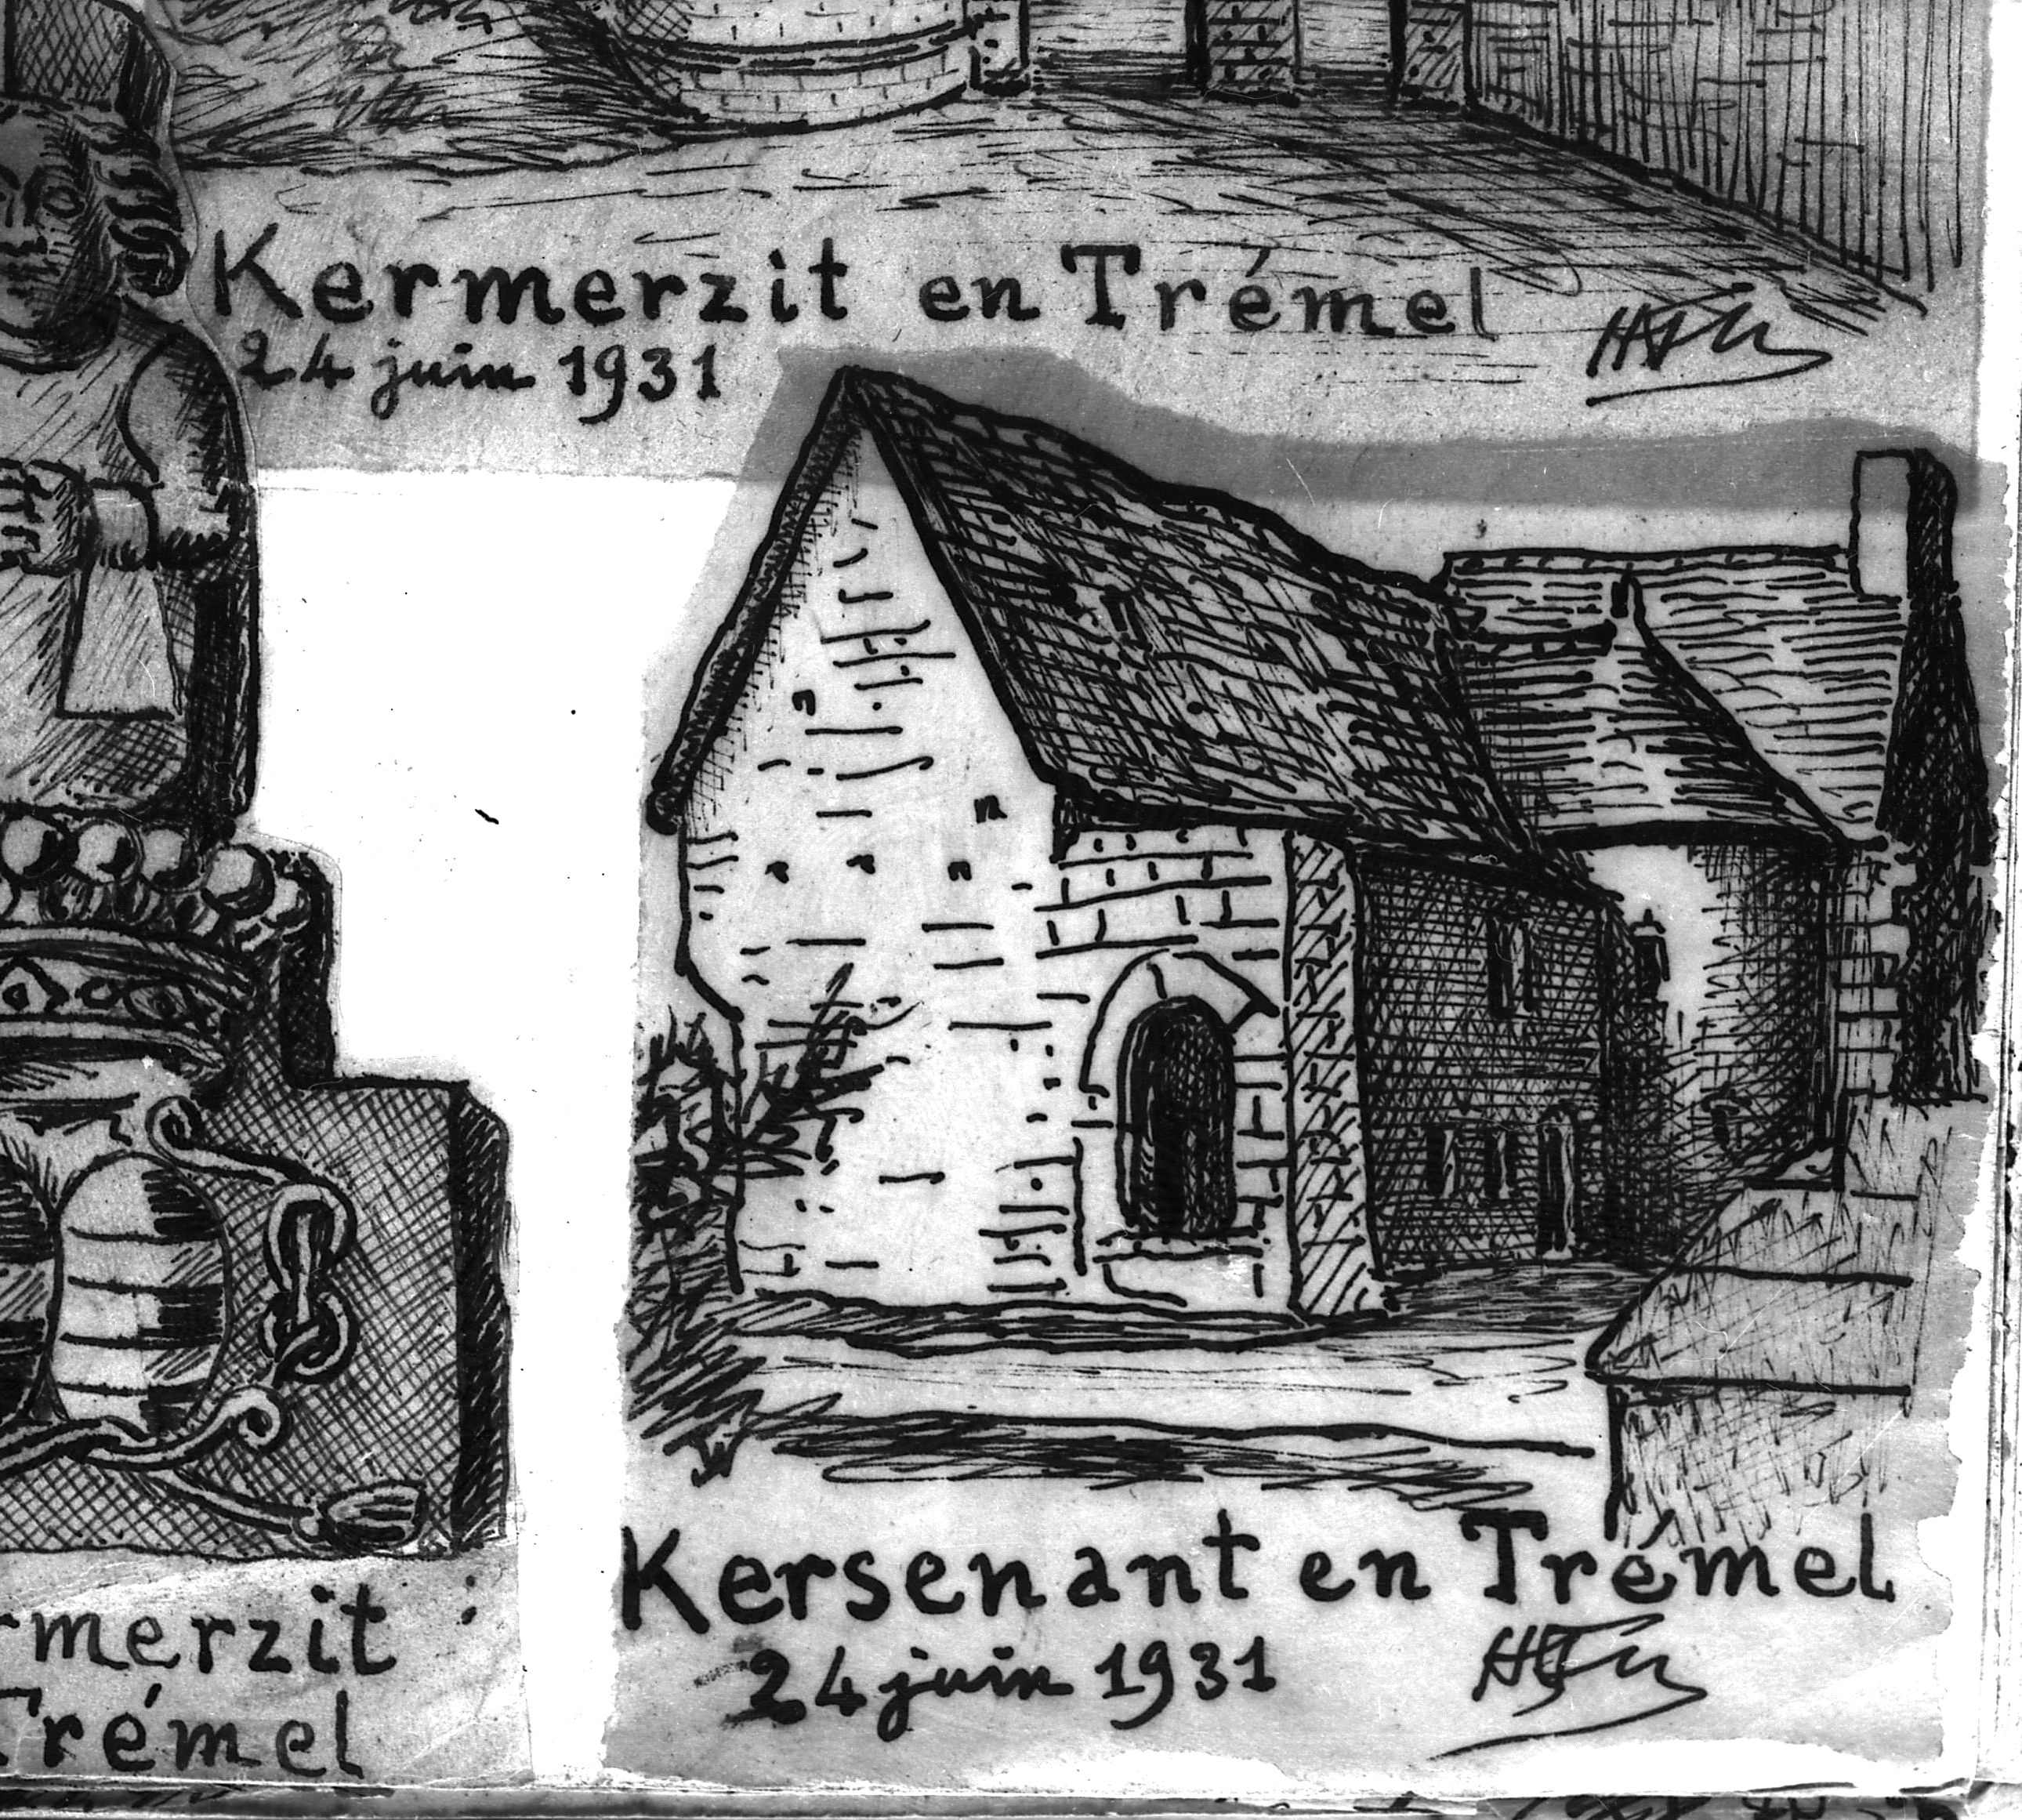 Kermerzit en Trémel
24 juin 1931
Kersenant en Trémel
24 juin 1931
rmerzit
Trémel